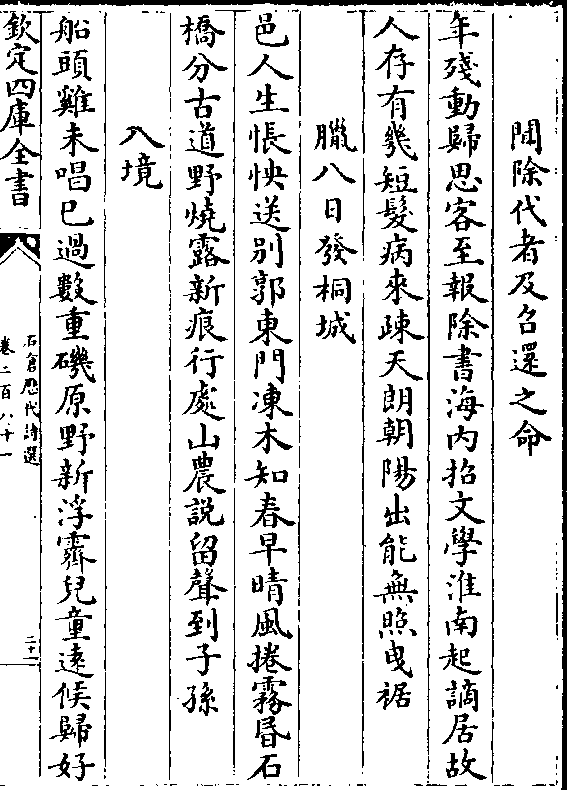 聞除代者及召還之命
年殘動歸思客至報除書海內招文學淮南起謫居故
人存有幾短髮病來疎天朗朝陽出能無照曳裾
臘八日發桐城
邑人生悵怏送別郭東門凍木知春早晴風捲霧昏石
橋分古道野燒露新痕行處山農説留聲到子孫
入境
船頭雞未唱已過數重磯原野新浮霽兒童遠候歸好
欽定四庫全書
石倉歷代詩選
卷二百八十一
二十一